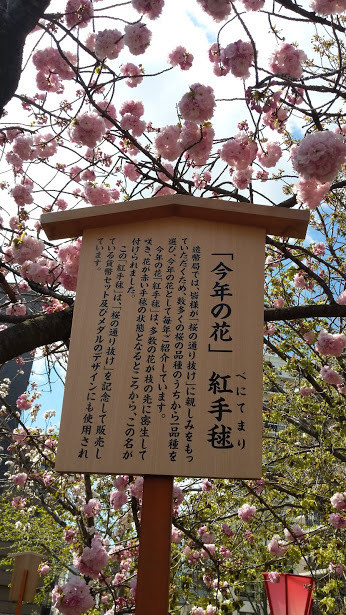 「今年の花」 紅手毬
べにてまり
造幣局では、皆様が「桜の通り抜け」に親しみをもっ
ていただくため、数多くの桜の品種のうちから一品種を
選び、今年の花として毎年ご紹介しています。
今年の花「紅手毬」は、多数の花が枝の先に密生して
咲き、花が赤い手毬の状態となるところから、この名が
付けられました。
この「紅手毬」は、「桜の通り抜け」を記念して販売し
ている貨幣セット及びメダルのデザインにも使用され
ています。